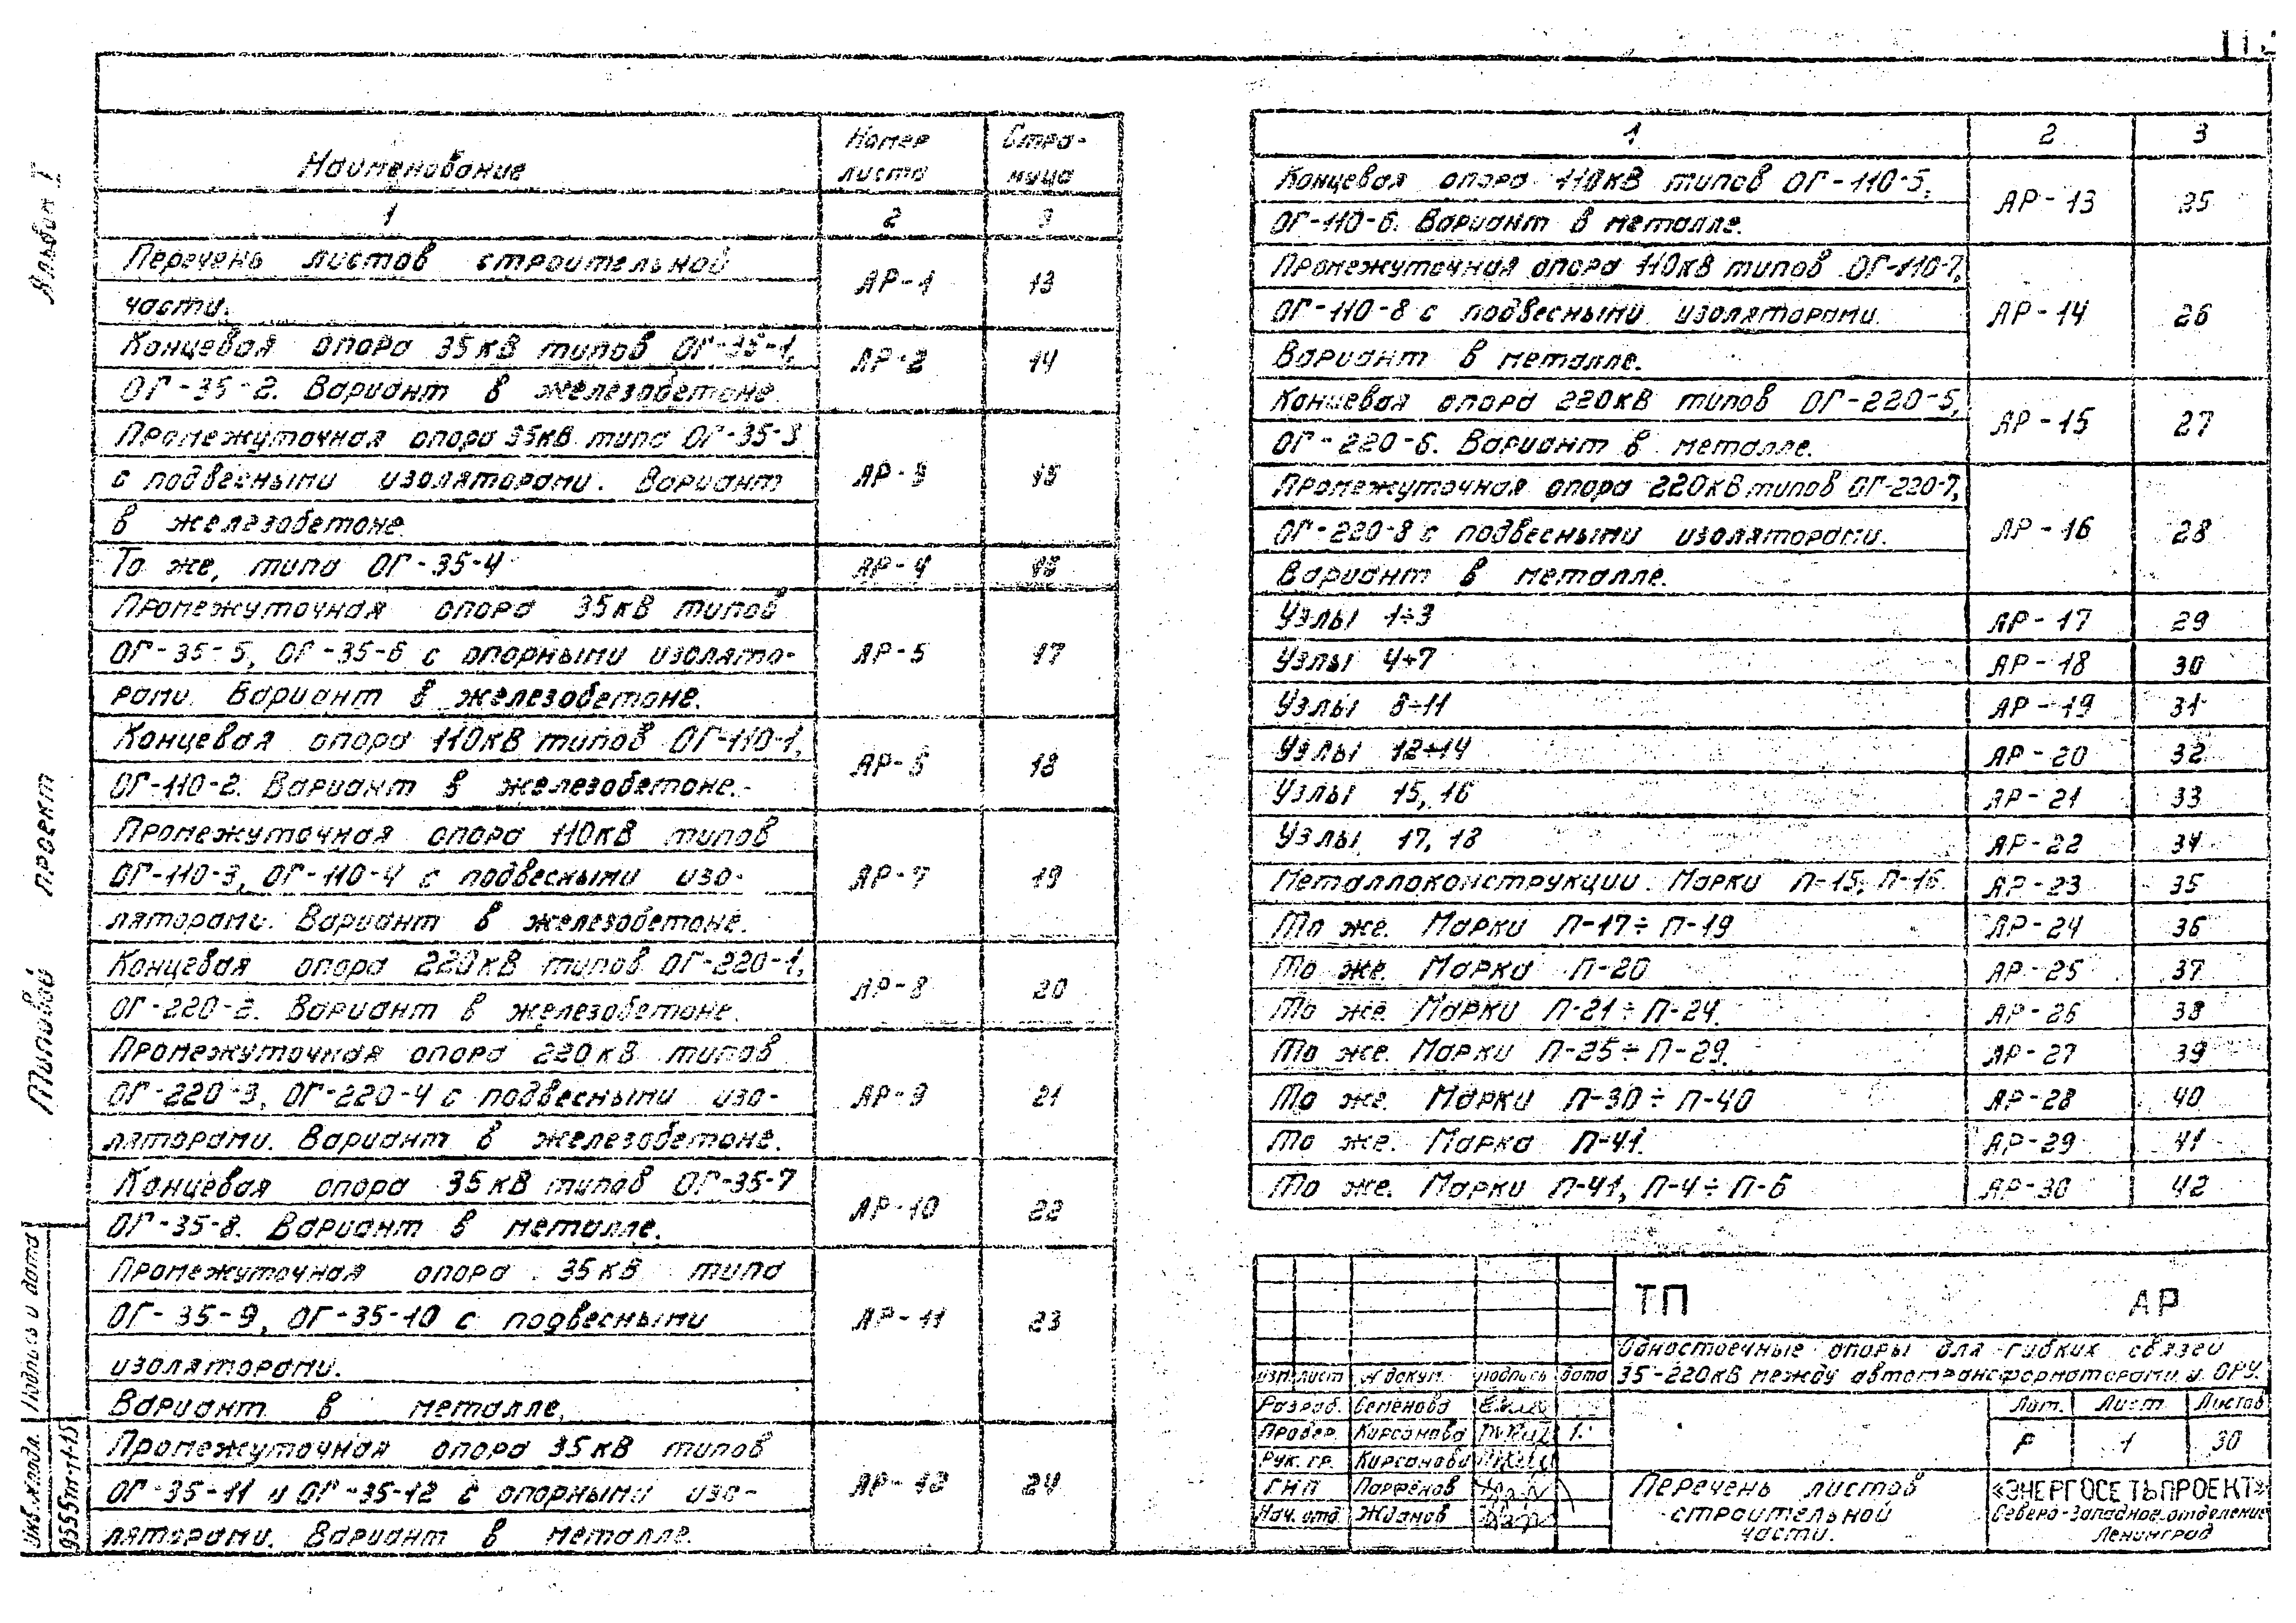 Альбом I
Типовой проект
Подпись и дата
Инв. № подл.
9555тм-т1-15
Наименование
Номер листа
Стра-
ница
1 2 3
Перечень листов строительной
части.
АР-1 13
Концевая опора 35кВ типов ОГ-35-1,
ОГ-35-2. Вариант в железобетоне.
АР-2 14
Промежуточная опора 35кВ типа ОГ-35-3
с подвесными изоляторами. Вариант
в железобетоне.
АР-3 15
То же, типа ОГ-35-4 АР-4 16
Промежуточная опора 35кВ типов
ОГ-35-5, ОГ-35-6 с опорными изолято-
рами. Вариант в железобетоне.
АР-5 17
Концевая опора 110кВ типов ОГ-110-1,
ОГ-110-2. Вариант в железобетоне.
АР-6 18
Промежуточная опора 110кВ типов
ОГ-110-3, ОГ-110-4 с подвесными изо-
ляторами. Вариант в железобетоне.
АР-7 19
Концевая опора 220кВ типов ОГ-220-1,
ОГ-220-2. Вариант в железобетоне.
АР-8 20
Промежуточная опора 220кВ типов
ОГ-220-3, ОГ-220-4 с подвесными изо-
ляторами. Вариант в железобетоне.
АР-9 21
Концевая опора 35кВ типов ОГ-35-7
ОГ-35-8. Вариант в металле.
АР-10 22
Промежуточная опора 35кВ типа
ОГ-35-9, ОГ-35-10 с подвесными
изоляторами.
Вариант в металле.
АР-11 23
Промежуточная опора 35кВ типов
ОГ-35-11 и ОГ-35-12 с опорными изо-
ляторами. Вариант в металле.
АР-12 24
1 2 3
Концевая опора 110кВ типов ОГ-110-5,
ОГ-110-6. Вариант в металле.
АР-13 25
Промежуточная опора 110кВ типов ОГ-110-7,
ОГ-110-8 с подвесными изоляторами.
Вариант в металле.
АР-14 26
Концевая опора 220кВ типов ОГ-220-5,
ОГ-220-6. Вариант в металле.
АР-15 27
Промежуточная опора 220кВ типов ОГ-220-7,
ОГ-220-8 с подвесными изоляторами.
Вариант в металле.
АР-16 28
Узлы 1÷3 АР-17 29
Узлы 4÷7 АР-18 30
Узлы 8÷11 АР-19 31
Узлы 12÷14 АР-20 32
Узлы 15, 16 АР-21 33
Узлы 17, 18 АР-22 34
Металлоконструкции. Марки П-15, П-16. АР-23 35
То же. Марки П-17÷П-19 АР-24 36
То же. Марка П-20 АР-25 37
То же. Марки П-21÷П-24. АР-26 38
То же. Марки П-25÷П-29. АР-27 39
То же. Марки П-30÷П-40 АР-28 40
То же. Марка П-41. АР-29 41
То же. Марки П-41, П-4÷П-6 АР-30 42
ТП АР
Одностоечные опоры для гибких связей
35-220кВ между автотрансформаторами и ОРУ.
Изм. лист № докум. подпись дата
Разраб. Семенова
Провер. Кирсанова
Рук. гр. Кирсанова
ГИП Парфенов
Нач. отд. Жданов
Лит. Лист Листов
Р 1 30
Перечень листов
строительной
части.
«ЭНЕРГОСЕТЬПРОЕКТ»
Северо-Западное отделение
Ленинград